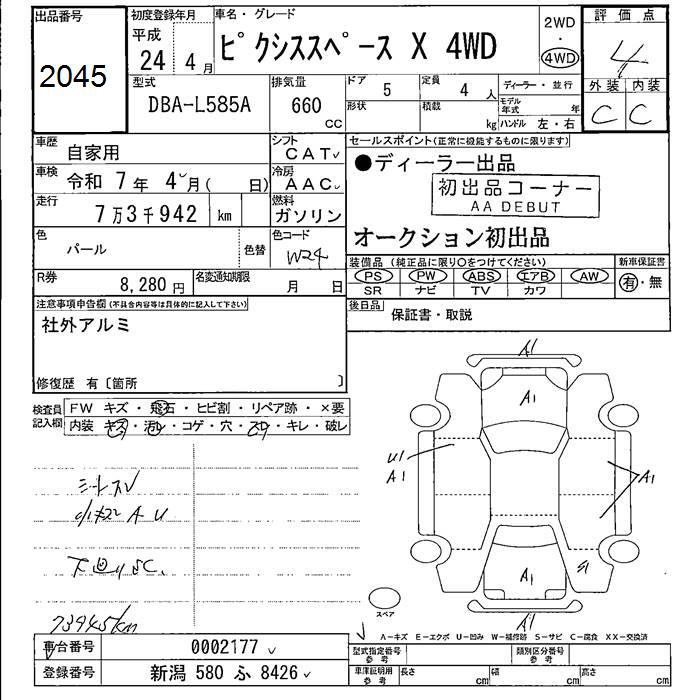 出品番号 初度登録年月 車名・グレード 2WD 評価点
平成
2045 24 4月 ピクシススペース X 4WD ・ 4WD 4
型式 排気量 ドア 定員 ディーラー・並行 外装 内装
DBA-L585A 660 CC 5 4 人 モデル年式 年 C C
形状 積載 kg ハンドル 左・右
車歴 自家用 シフト CAT セールスポイント(正常に機能するものに限ります)
車検 令和 7年 4月( 日) 冷房 AAC ●ディーラー出品
初出品コーナー
走行 7万3千942 km 燃料 ガソリン AA DEBUT
色 パール 色替 色コード W24 オークション初出品
装備品(純正品に限り○をつけてください) 新車保証書
R券 8,280円 名変通知期限 月 日 PS PW ABS エアB AW 有・無
SR ナビ TV カワ
注意事項申告欄(不具合内容等は具体的に記入して下さい) 後日品
社外アルミ 保証書・取説
修復歴 有〔箇所 〕
検査員記入欄 FW キズ・飛石・ヒビ割・リペア跡・×要
内装 キズ・汚レ・コゲ・穴・スレ・キレ・破レ
A1
A1
U1
A1
A1
シートスレ
A U
下廻りSC.
A1
S1
73945km
スペア
A1
A−キズ E−エクボ U−凹み W−補修跡 S−サビ C−腐食 XX−交換済
車台番号 0002177 型式指定番号 参考 類別区分番号 参考
登録番号 新潟 580 ふ 8426 車庫証明用 参考 長さ cm 幅 cm 高さ cm